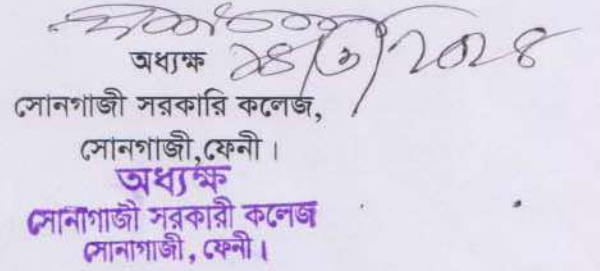 অধ্যক্ষ ২৪/৩/২০২৪
সোনগাজী সরকারি কলেজ,
সোনগাজী,ফেনী ।
অধ্যক্ষ
সোনাগাজী সরকারী কলেজ
সোনাগাজী , ফেনী ।